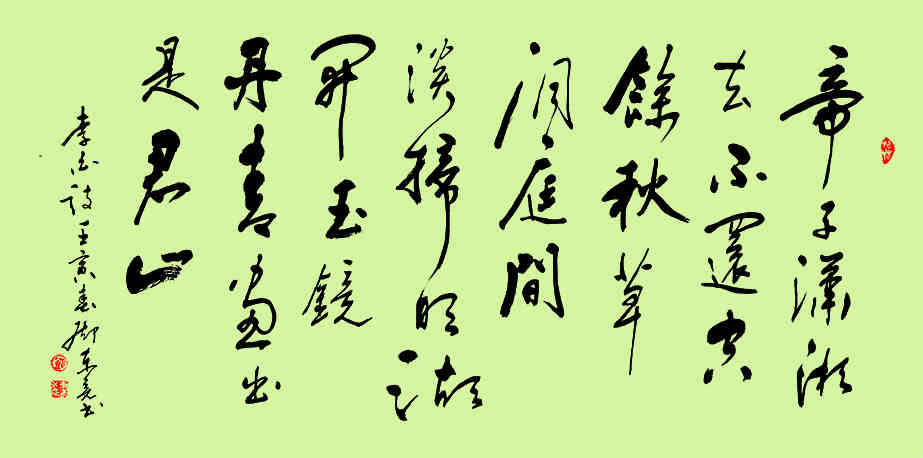 帝子瀟湘
去不還空
餘秋草
洞庭間
淡掃明湖
開玉鏡
丹青畫出
是君山
李白詩壬寅春 东 书